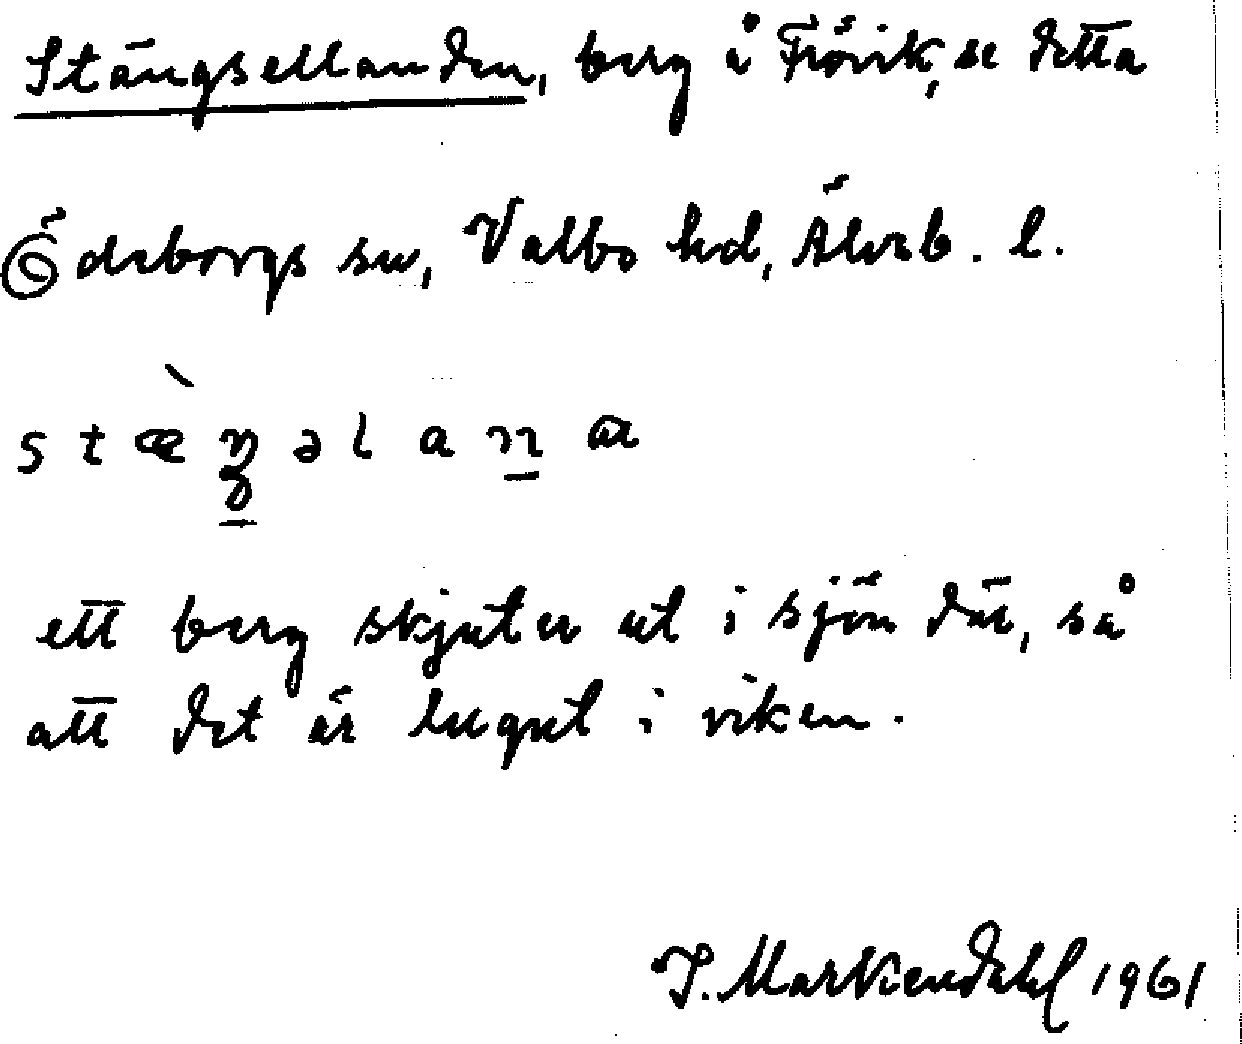 Stängsellanden, berg å Frövik, se detta
Ödeborgs sn, Valbo hd, Älvsb. l.
ett berg skjuter ut i sjön där, så
att det är lugnt i viken.
J. Markendahl 1961